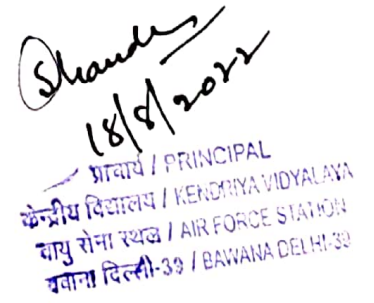 18/8/2022
प्राचार्य / PRINCIPAL
केन्द्रीय विद्यालय / KENDRIYA VIDYALAYA
वायु सेना स्थल / AIR FORCE STATION
बवाना दिल्ली-39 / BAWANA DELHI-39